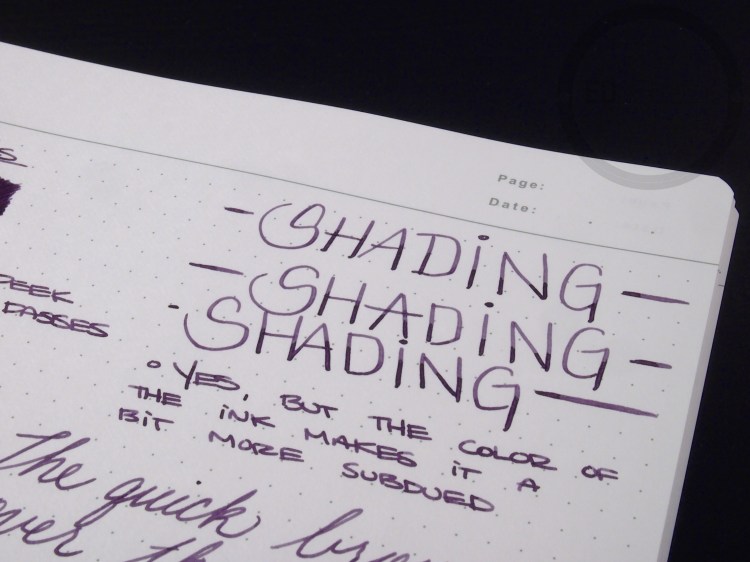 Page:
Date:
- SHADiNG -
- SHADiNG -
- SHADiNG -
PEEK
PASSES
• YES, BUT THE COLOR OF
THE iNK MAKES iT A
BiT MORE SUBDUED
The quick